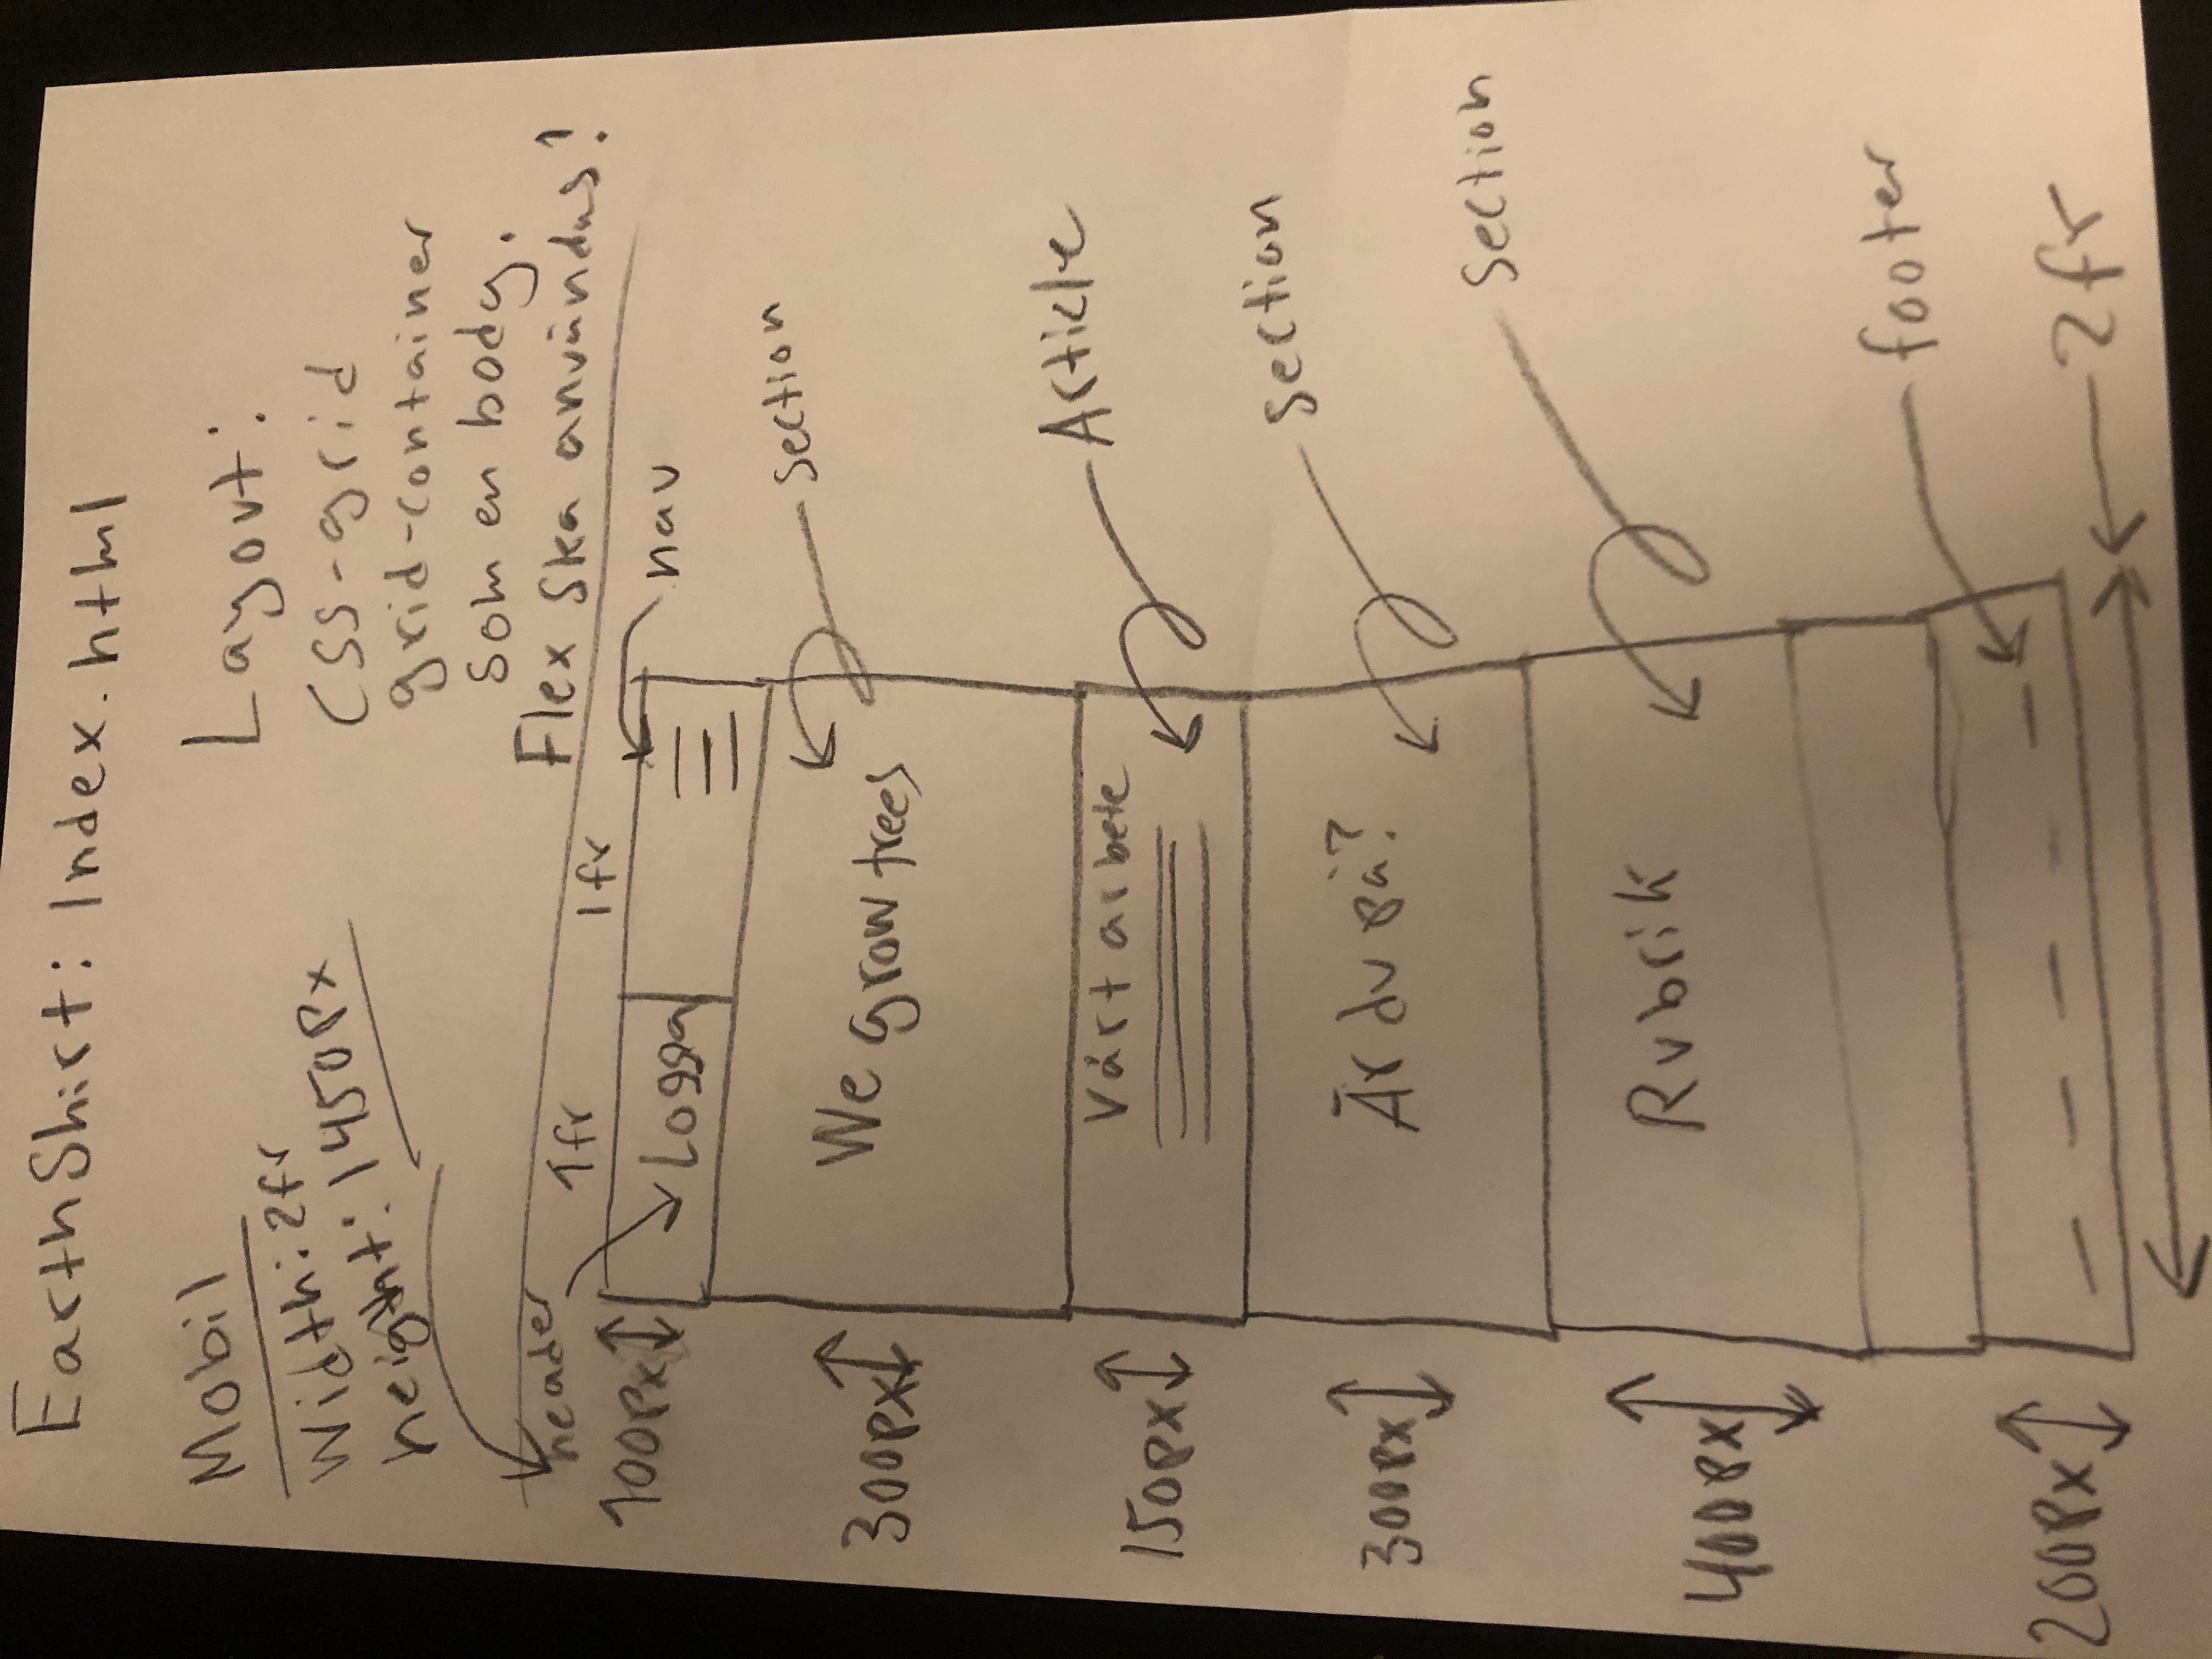 EarthShirt: Index.html
Mobil
Width: 2fr
height: 1450px
Layout:
CSS-grid
grid-container
som en body.
Flex ska användas!
header
1fr
1fr
100px
Logga
nav
section
300px
We grow trees
Article
150px
Vårt arbete
section
300px
Är du på?
section
400px
Rubrik
footer
200px
2fr